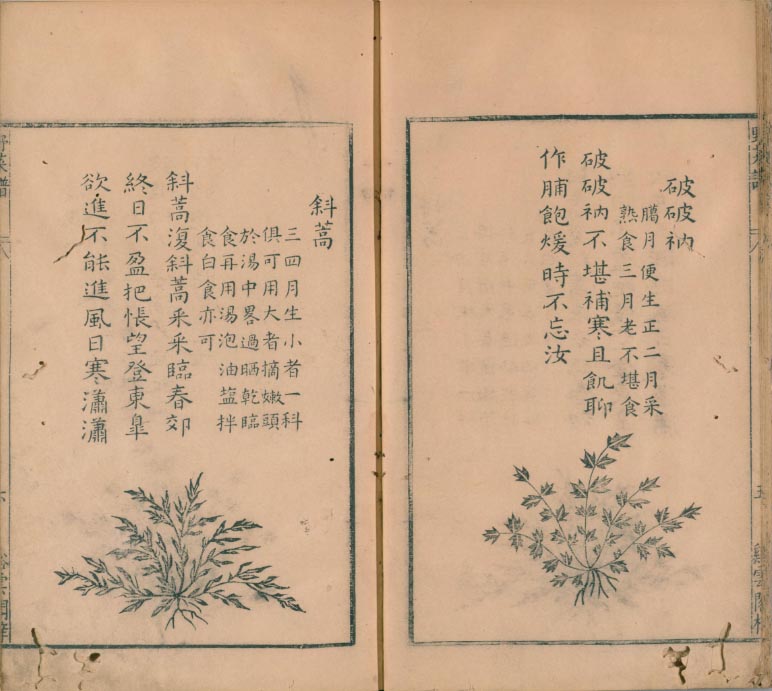 破破衲
臈月便生正二月采
熟食三月老不堪食
破破衲不堪補寒且飢聊
作脯飽煖時不忘汝
五
斜蒿
三四月生小者一科
俱可用大者摘嫩頭
於湯中畧過晒乾臨
食再用湯泡油盐拌
食白食亦可
斜蒿復斜蒿采采臨春郊
終日不盈把悵望登東皐
欲進不能進風日寒瀟瀟
野菜譜